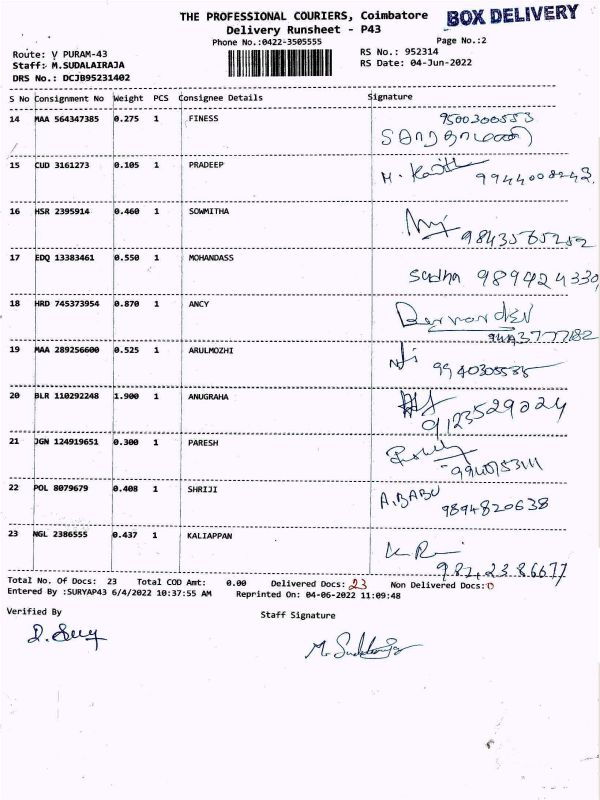 THE PROFESSIONAL COURIERS, Coimbatore
BOX DELIVERY
Delivery Runsheet - P43
Phone No.:0422-3505555
Page No.:2
Route: V PURAM-43
RS No.: 952314
Staff: M.SUDALAIRAJA
RS Date: 04-Jun-2022
DRS No.: DCJB95231402
S No Consignment No Weight PCS Consignee Details Signature
14 MAA 564347385 0.275 1 FINESS 9500300553
15 CUD 3161273 0.105 1 PRADEEP 9944008243
16 HSR 2395914 0.460 1 SOWMITHA 9843565252
17 EDQ 13383461 0.550 1 MOHANDASS Sudha 9894424330
18 HRD 745373954 0.870 1 ANCY
19 MAA 289256600 0.525 1 ARULMOZHI 9940305585
20 BLR 110292248 1.900 1 ANUGRAHA 9123529024
21 JGN 124919651 0.300 1 PARESH
22 POL 8079679 0.408 1 SHRIJI A.BABU 9894820638
23 NGL 2386555 0.437 1 KALIAPPAN
Total No. Of Docs: 23 Total COD Amt: 0.00 Delivered Docs: 23 Non Delivered Docs: 0
Entered By :SURYAP43 6/4/2022 10:37:55 AM Reprinted On: 04-06-2022 11:09:48
Verified By
Staff Signature